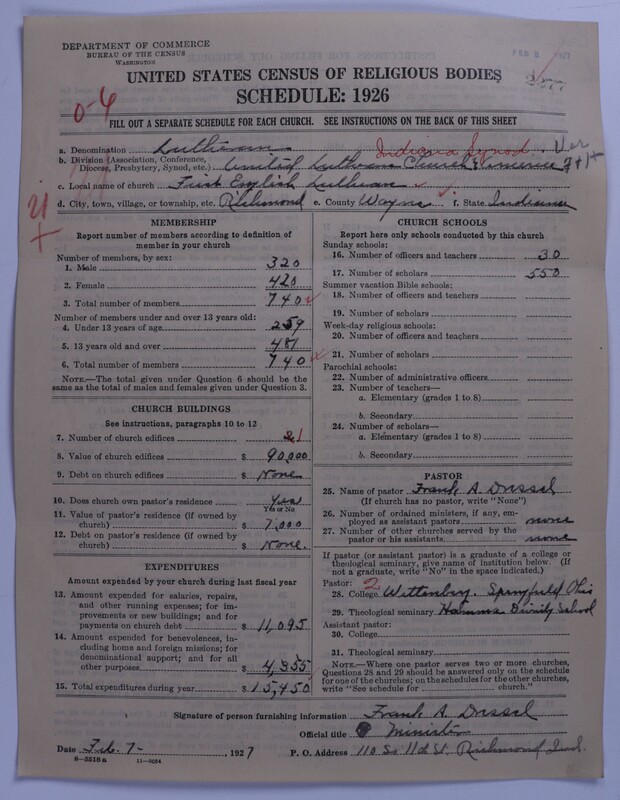 DEPARTMENT OF COMMERCE
BUREAU OF THE CENSUS
WASHINGTON
UNITED STATES CENSUS OF RELIGIOUS BODIES
SCHEDULE: 1926
0-6
FILL OUT A SEPARATE SCHEDULE FOR EACH CHURCH. SEE INSTRUCTIONS ON THE BACK OF THIS SHEET
a. Denomination Lutheran Indiana Synod
b. Division (Association, Conference, Diocese, Presbytery, Synod, etc.) United Lutheran Church America
c. Local name of church First English Lutheran
d. City, town, village, or township, etc. Richmond e. County Wayne f. State Indiana
MEMBERSHIP
Report number of members according to definition of member in your church
Number of members, by sex:
1. Male 320
2. Female 420
3. Total number of members 740
Number of members under and over 13 years old:
4. Under 13 years of age 259
5. 13 years old and over 481
6. Total number of members 740
NOTE.—The total given under Question 6 should be the same as the total of males and females given under Question 3.
CHURCH BUILDINGS
See instructions, paragraphs 10 to 12
7. Number of church edifices 1
8. Value of church edifices $ 90,000
9. Debt on church edifices $ None
10. Does church own pastor's residence Yes
Yes or No
11. Value of pastor's residence (if owned by church) $ 7,000
12. Debt on pastor's residence (if owned by church) $ None.
EXPENDITURES
Amount expended by your church during last fiscal year
13. Amount expended for salaries, repairs, and other running expenses; for improvements or new buildings; and for payments on church debt $ 11,095
14. Amount expended for benevolences, including home and foreign missions; for denominational support; and for all other purposes $ 4,355
15. Total expenditures during year $ 15,450
CHURCH SCHOOLS
Report here only schools conducted by this church
Sunday schools:
16. Number of officers and teachers 30
17. Number of scholars 550
Summer vacation Bible schools:
18. Number of officers and teachers
19. Number of scholars
Week-day religious schools:
20. Number of officers and teachers
21. Number of scholars
Parochial schools:
22. Number of administrative officers
23. Number of teachers—
a. Elementary (grades 1 to 8)
b. Secondary
24. Number of scholars—
a. Elementary (grades 1 to 8)
b. Secondary
PASTOR
25. Name of pastor Frank A. Dressel
(If church has no pastor, write "None")
26. Number of ordained ministers, if any, employed as assistant pastors none
27. Number of other churches served by the pastor or his assistants none
If pastor (or assistant pastor) is a graduate of a college or theological seminary, give name of institution below. (If not a graduate, write "No" in the space indicated.)
Pastor: 2
28. College Wittenberg. Springfield Ohio
29. Theological seminary Hamma Divinity School
Assistant pastor:
30. College
31. Theological seminary
NOTE.—Where one pastor serves two or more churches, Questions 28 and 29 should be answered only on the schedule for one of the churches; on the schedules for the other churches, write "See schedule for ........ church."
Signature of person furnishing information Frank A. Dressel
Official title Minister
Date Feb. 7- , 1927 P. O. Address 110 So 11th St. Richmond Ind.
8-5518a 11-9054